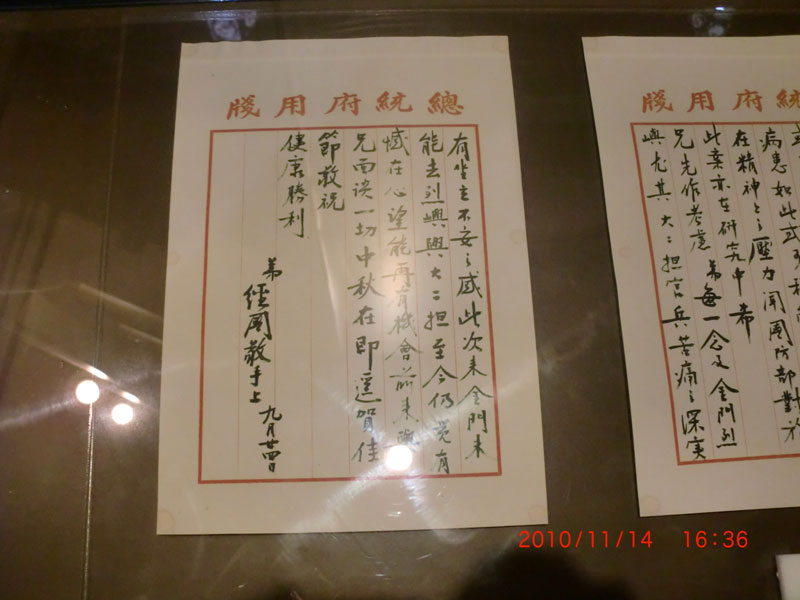 統府用牋
病患如此或
在精神上之壓力聞國防部對於
此案亦在研究中希
兄先作考慮 弟每一念及金門烈
嶼尤其大二担官兵苦痛之深实
總統府用牋
有坐立不安之感此次来金門未
能去烈嶼與大二担至今仍覺有
憾在心望能再有機會前来與
兄面谈一切中秋在即遥賀佳
節敬祝
健康勝利
弟 經國敬手上 九月廿四日
2010/11/14 16:36